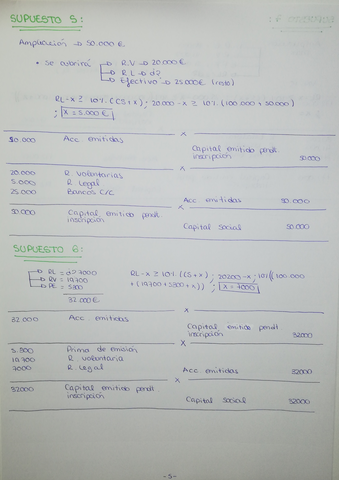 SUPUESTO 5:
Ampliación → 50.000 €
• se cubrirá → R.V → 20.000 €
→ R.L → d?
→ Efectivo → 25.000 € (resto)
RL-x ≥ 10% (CS+x) ; 20.000 -x ≥ 10% (100.000 + 50.000)
; x = 5.000 €
50.000 Acc emitidas
Capital emitido pendt
inscripción 50.000
20.000 R Voluntarias
5.000 R Legal
25.000 Bancos C/C
Acc emitidas 50.000
50.000 Capital emitido pendt
inscripción
Capital social 50.000
SUPUESTO 6:
→ RL = d? 7000
→ RV = 19.700
→ PE = 5.300
32.000 €
RL-x ≥ 10% ((CS+x) ; 20.200 -x ; 10% (100.000
+ (19.700 + 5300 + x)) ; x = 7000
32.000 Acc. emitidas
Capital emitido pendt
inscripción 32000
5.300 Prima de emisión
19.700 R Voluntaria
7000 R Legal
Acc emitidas 32000
32000 Capital emitido pendt
inscripción
Capital social 32000
-5-